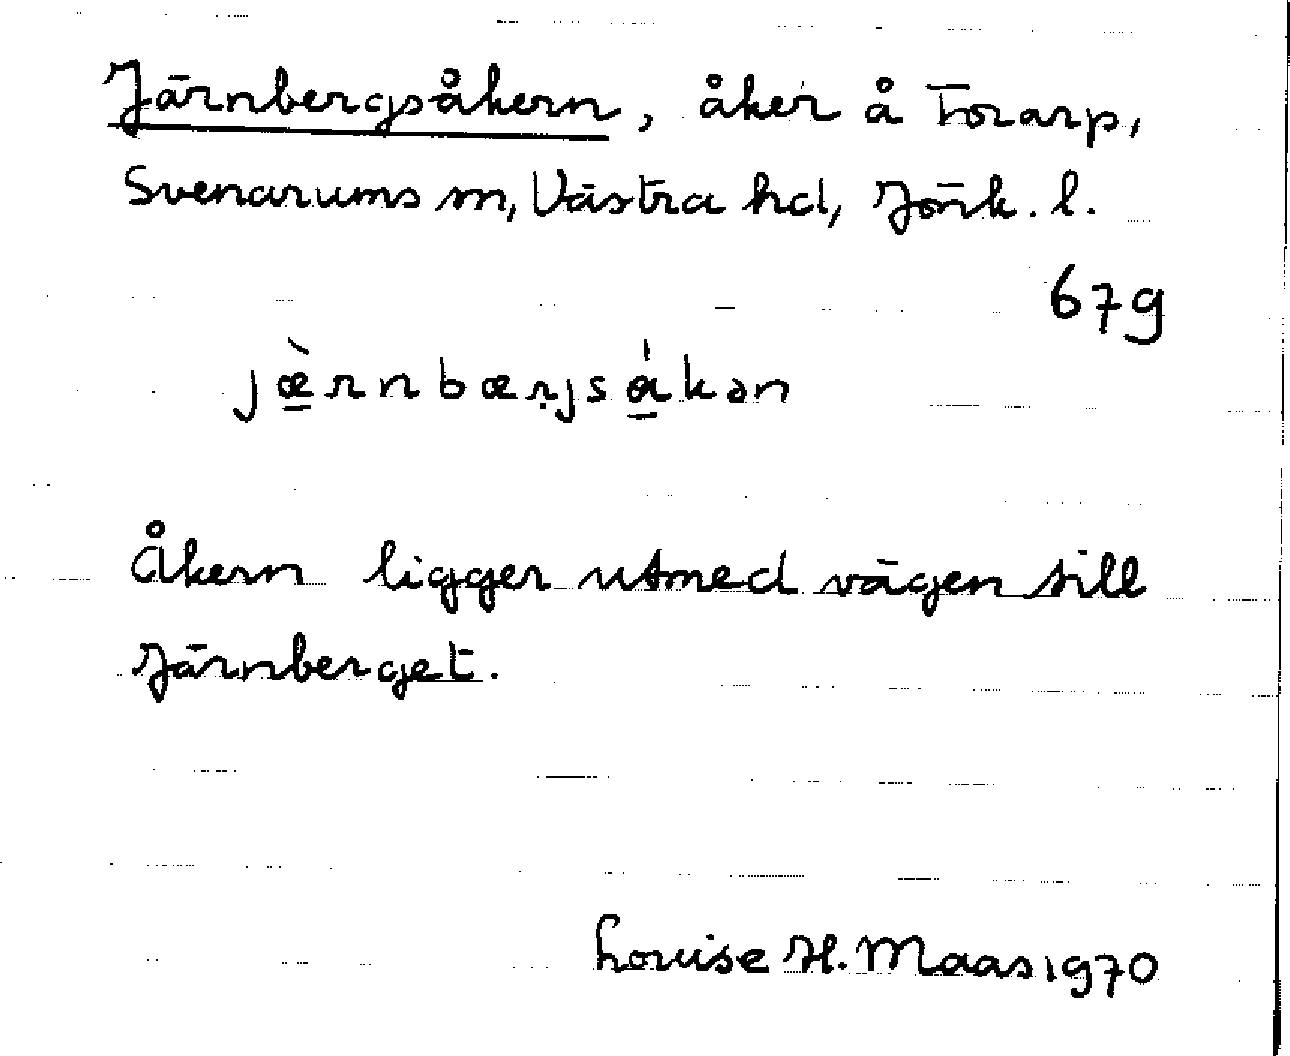 Järnbergsåkern, åker å Torarp,
Svenarums sn, Västra hd, Jönk. l.
67g
jæ̠̀rnbærjsǻ̠kən
Åkern ligger utmed vägen till
Järnberget.
Louise H. Maas 1970